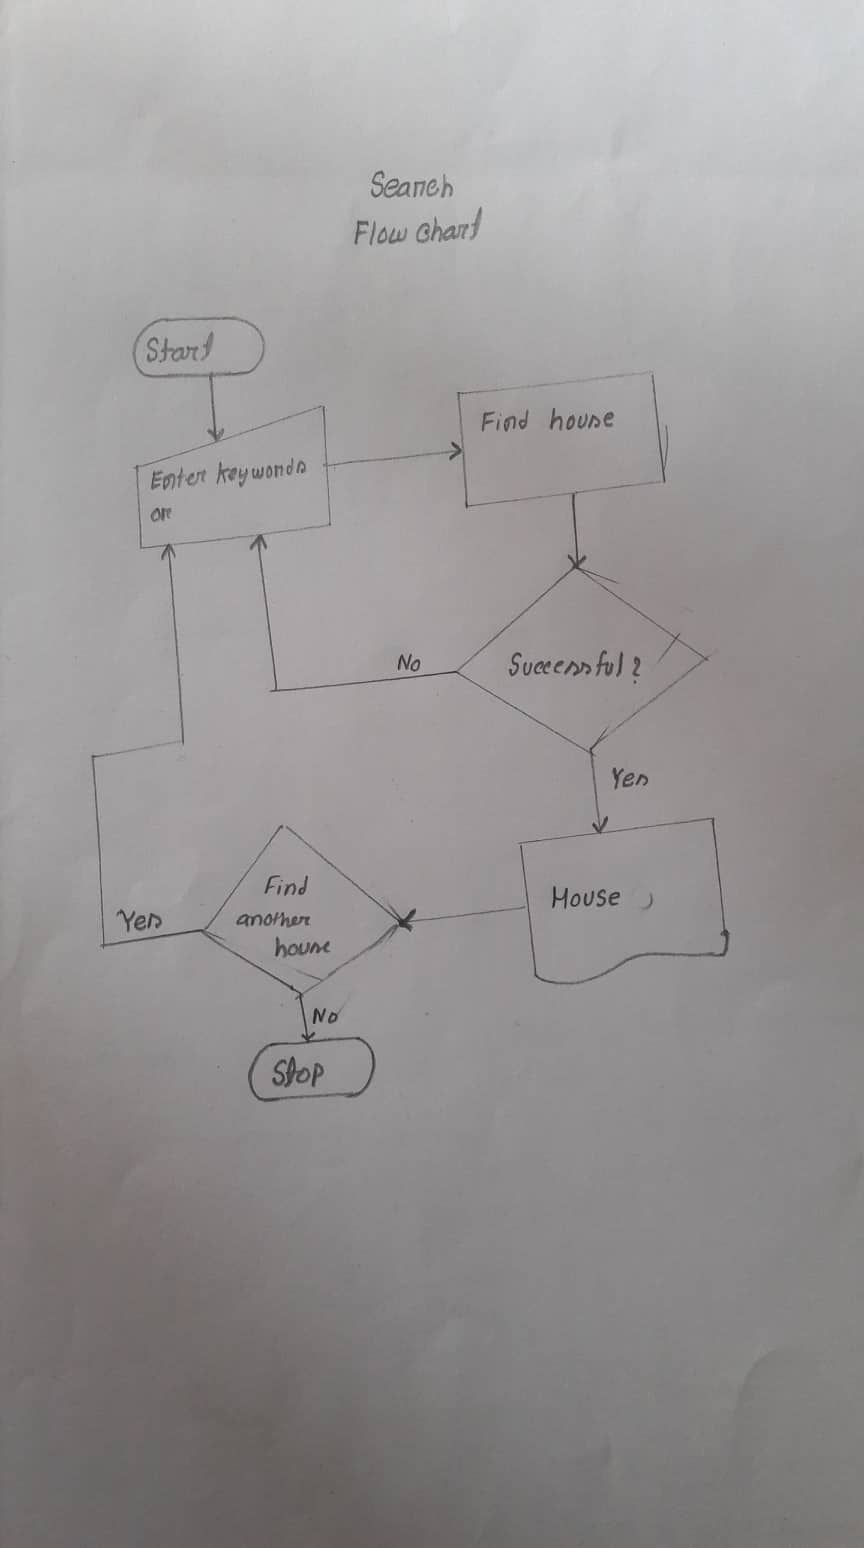 Search
Flow chart
Start
Enter keywords
or
Find house
Successful?
No
Yes
House
Find
another
house
Yes
No
Stop